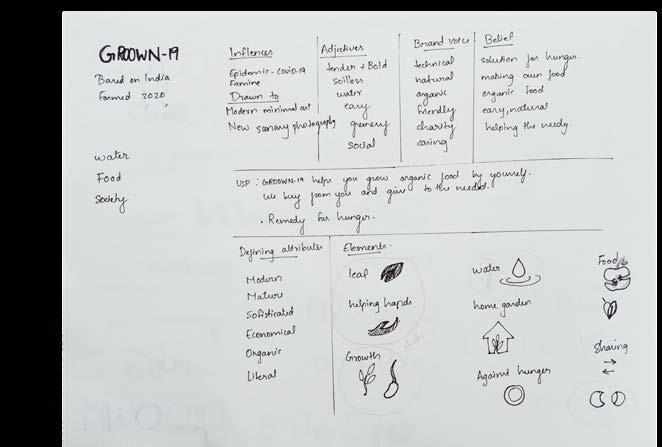 GROOWN-19
Based on India
Formed 2020
water
Food
Society
Inflences
Epidemic - Covid-19
Famine
Drawn to
Modern minimal art
New scenary photography
Adjectives
tender + Bold
Soilless
water
easy
greenery
social
Brand voice
technical
natural
organic
friendly
charity
caring
Belief
solution for hunger.
making own food
organic food
easy, natural
helping the needy.
USP : GROOWN-19 helps you grow organic food by yourself.
We buy from you and give to the needed.
. Remedy for hunger.
Defining attributes
Modern
Mature
Sofisticated
Economical
Organic
Literal
Elements.
leaf
helping hands
Growth
water
home garden
Against hunger
Food
Sharing